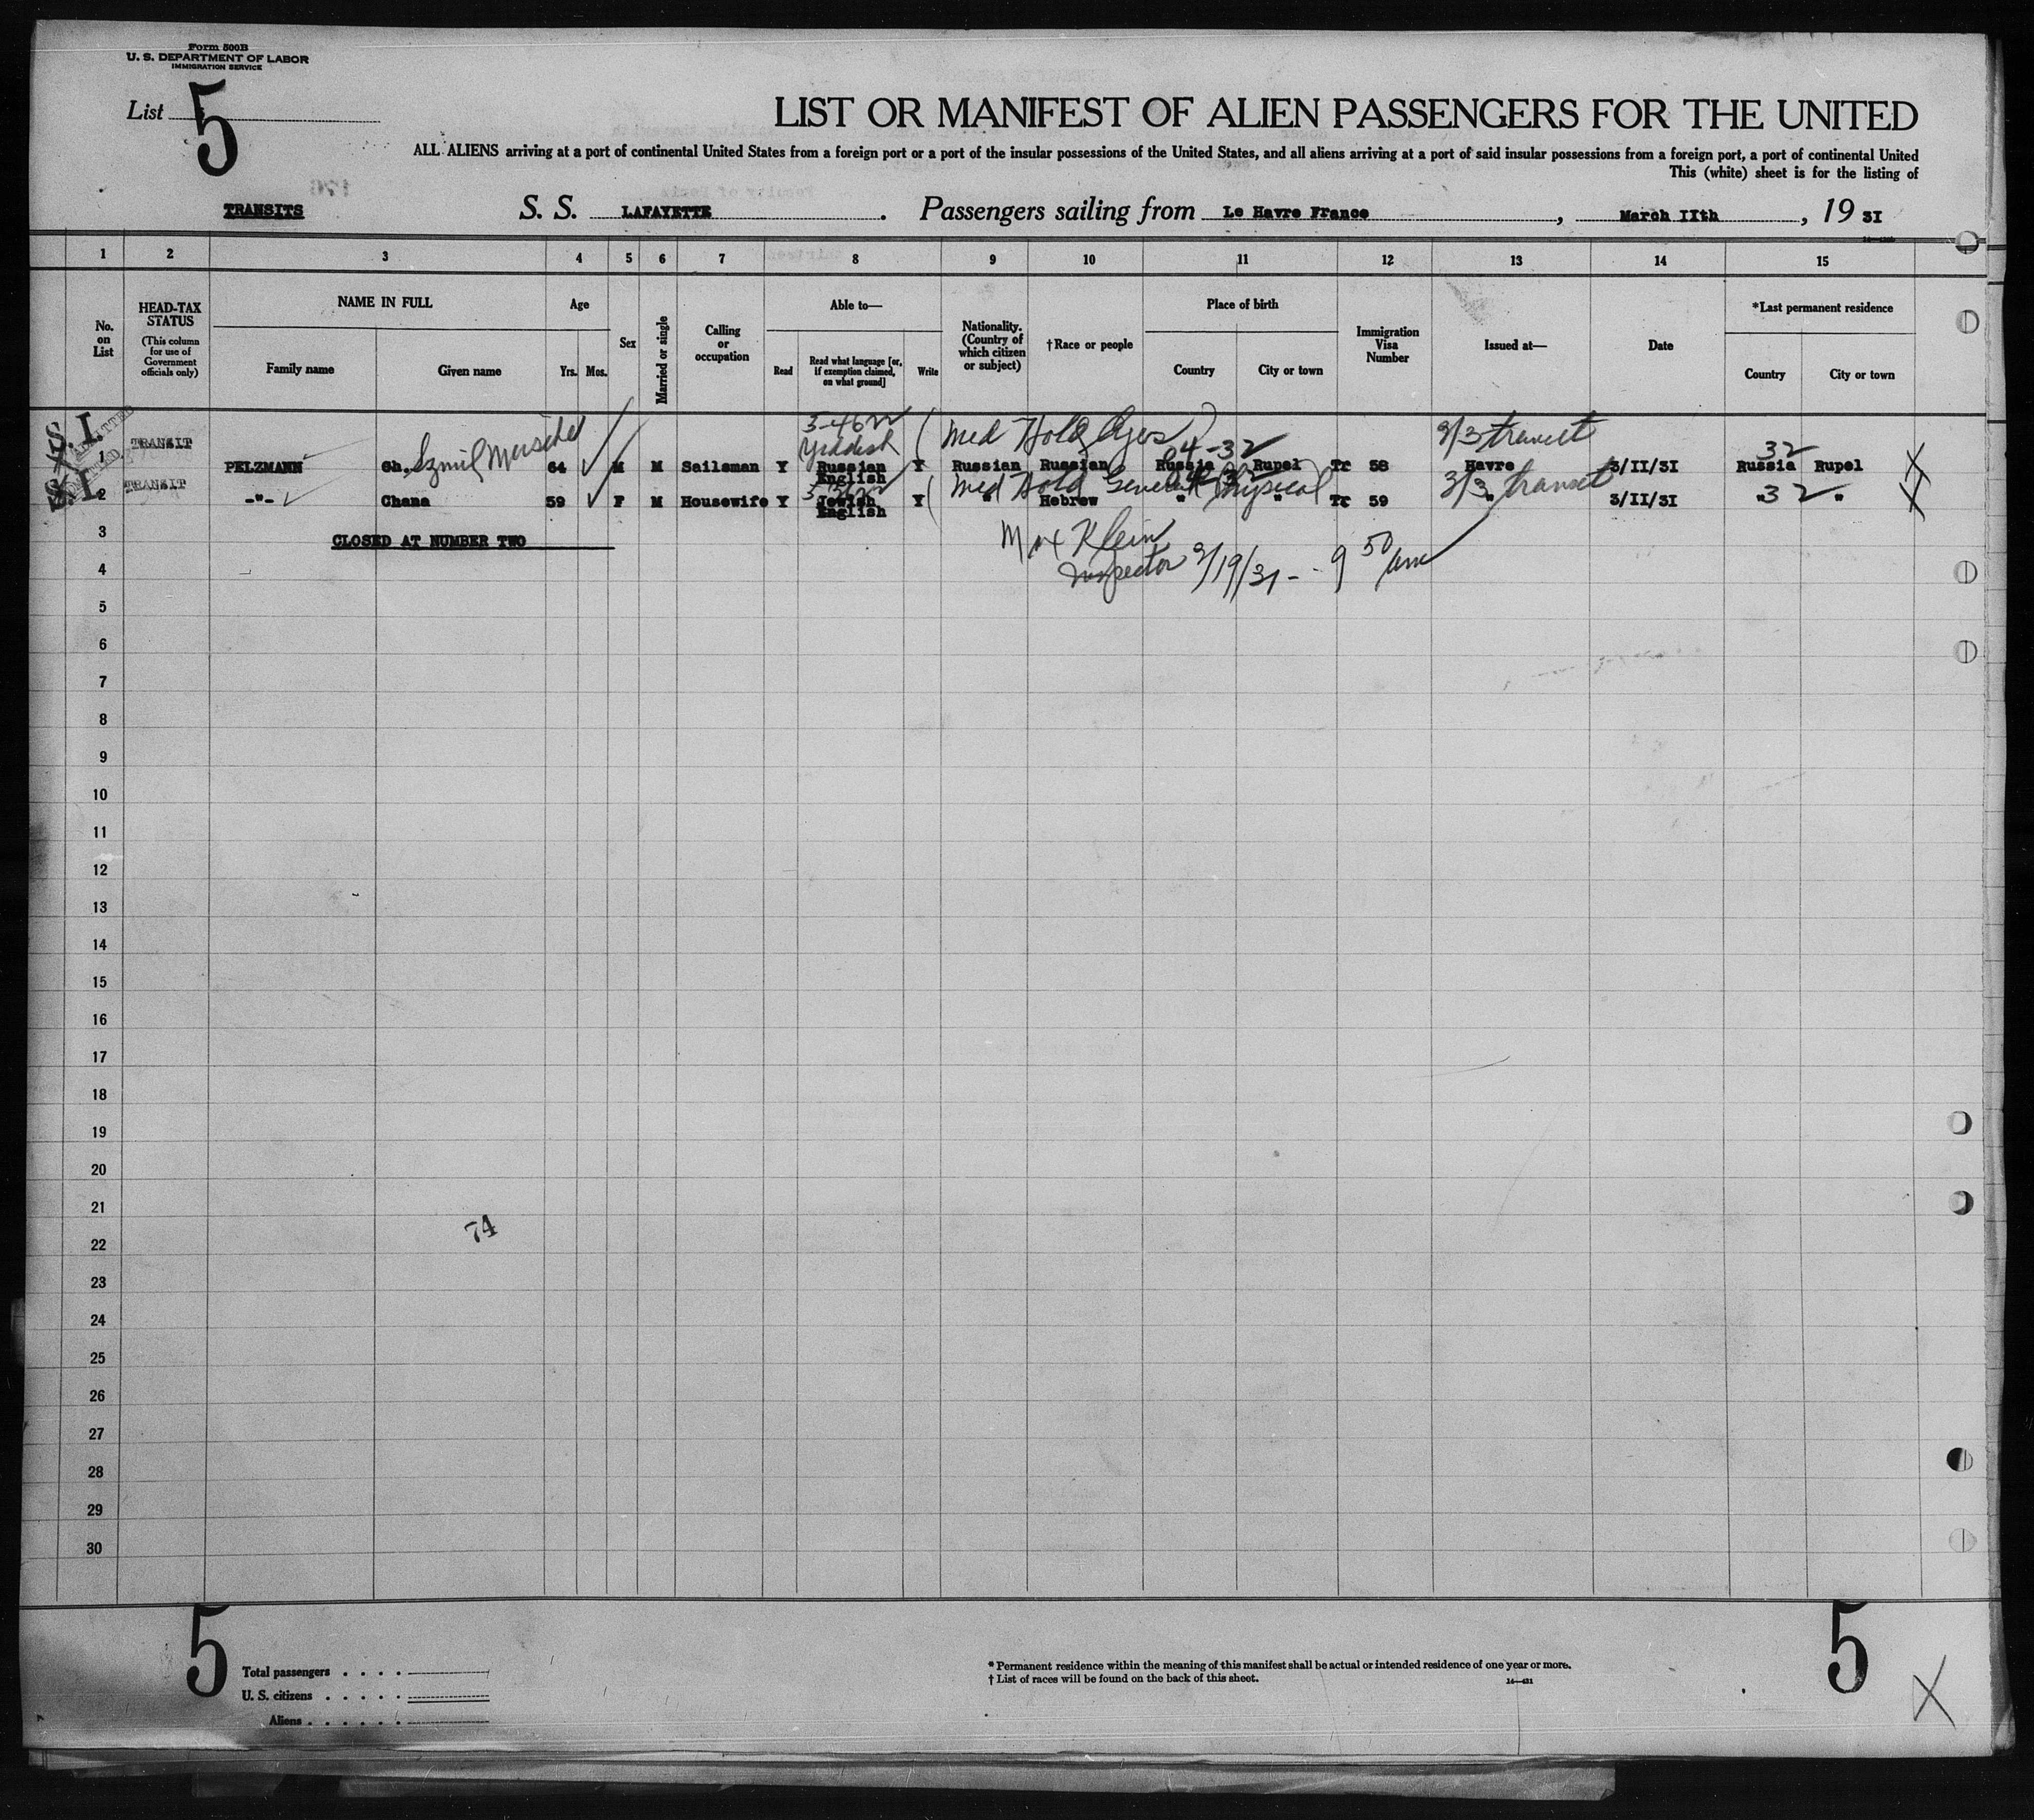 Form 500B
U. S. DEPARTMENT OF LABOR
IMMIGRATION SERVICE
List 5
LIST OR MANIFEST OF ALIEN PASSENGERS FOR THE UNITED
ALL ALIENS arriving at a port of continental United States from a foreign port or a port of the insular possessions of the United States, and all aliens arriving at a port of said insular possessions from a foreign port, a port of continental United
This (white) sheet is for the listing of
176
TRANSITS S. S. LAFAYETTE. Passengers sailing from Le Havre France, March IIth, 19 3I
1 2 3 4 5 6 7 8 9 10 11 12 13 14 15
No. on List
HEAD-TAX STATUS
(This column for use of Government officials only)
NAME IN FULL
Family name
Given name
Age
Yrs. Mos.
Sex
Married or single
Calling or occupation
Able to—
Read
Read what language [or, if exemption claimed, on what ground]
Write
Nationality. (Country of which citizen or subject)
†Race or people
Place of birth
Country
City or town
Immigration Visa Number
Issued at—
Date
*Last permanent residence
Country
City or town
S.I. ADMITTED
Yiddish (Med Hold Ages) 64-32 3/3 transit 32
1 TRANSIT PELZMANN Ch. Szmil 64 M M Sailsman Y Russian Y Russian Russian Russia Rupel Tr 58 Havre 3/II/3I Russia Rupel
English
S.I. ADMITTED
(Med Hold General Physical 3/3 transit 32
2 TRANSIT -"- Chana 59 F M Housewife Y Jewish Y " Hebrew " " Tr 59 " 3/II/3I " "
English
3 CLOSED AT NUMBER TWO Max Klein
4 Inspector 3/19/31 - 9 50 am
5
6
7
8
9
10
11
12
13
14
15
16
17
18
19
20
21
74
22
23
24
25
26
27
28
29
30
5
5
Total passengers
U. S. citizens
Aliens
* Permanent residence within the meaning of this manifest shall be actual or intended residence of one year or more.
† List of races will be found on the back of this sheet.
14—421
X